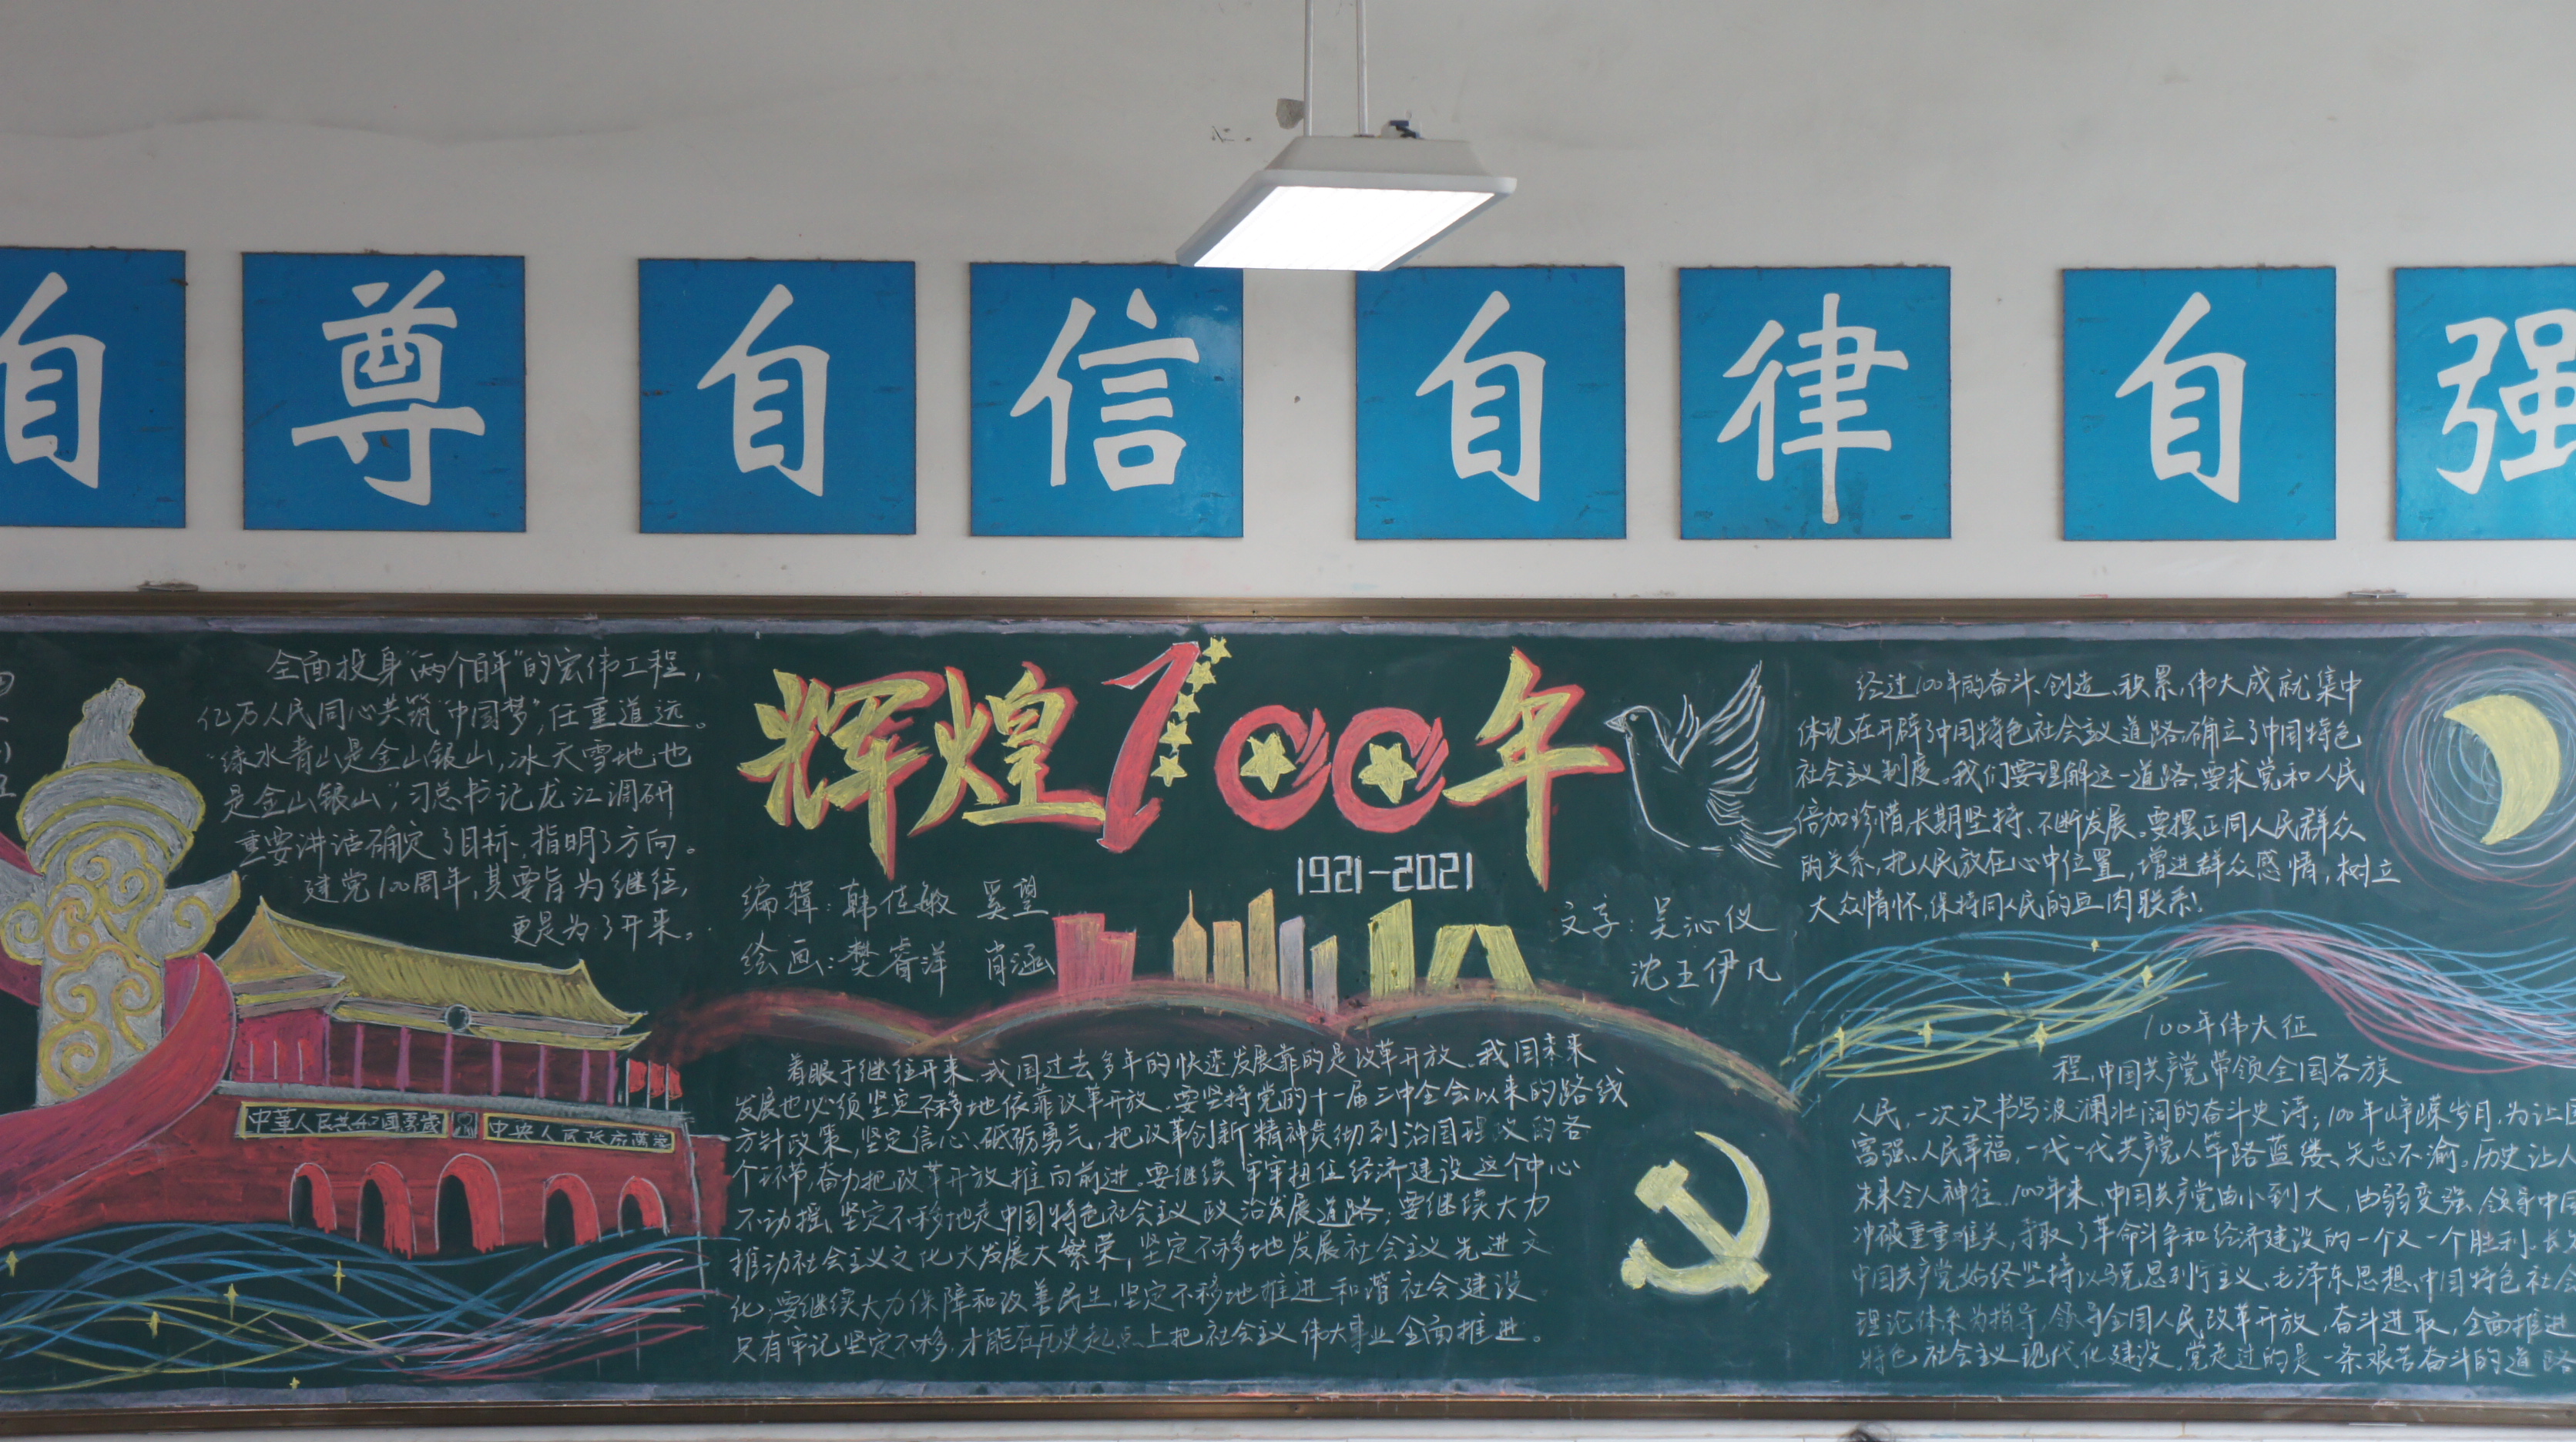 自 尊 自 信 自 律 自 强
全面投身"两个百年"的宏伟工程,
亿万人民同心共筑"中国梦",任重道远。
"绿水青山是金山银山,冰天雪地也
是金山银山",习总书记龙江调研
重要讲话确定了目标、指明了方向。
建党100周年,其要旨为继往,
更是为了开来。
中華人民共和国
中央人民政府
辉煌100年
1921-2021
编辑:韩佳敏 奚望
绘画:樊睿洋 肖涵
文字:吴沁仪
沈王伊凡
着眼于继往开来、我国过去多年的快速发展靠的是改革开放、我国未来
发展也必须坚定不移地依靠改革开放。要坚持党的十一届三中全会以来的路线
方针政策,坚定信心、砥砺勇气,把改革创新精神贯彻到治国理政的各
个环节,奋力把改革开放推向前进。要继续牢牢扭住经济建设这个中心
不动摇、坚定不移地走中国特色社会主义政治发展道路;要继续大力
推动社会主义文化大发展大繁荣,坚定不移地发展社会主义先进文
化,要继续大力保障和改善民生,坚定不移地推进和谐社会建设。
只有牢记坚定不移,才能在历史起点上把社会主义伟大事业全面推进。
经过100年的奋斗、创造、积累,伟大成就集中
体现在开辟了中国特色社会主义道路,确立了中国特色
社会主义制度。我们要理解这一道路,要求党和人民
倍加珍惜长期坚持、不断发展。要摆正同人民群众
的关系,把人民放在心中位置,增进群众感情,树立
大众情怀,保持同人民的血肉联系!
100年伟大征
程,中国共产党带领全国各族
人民,一次次书写波澜壮阔的奋斗史诗;100年峥嵘岁月,为让
富强、人民幸福,一代一代共产党人筚路蓝缕、矢志不渝。历史让人
未来令人神往。100年来,中国共产党由小到大,由弱变强,领导中
冲破重重难关,夺取了革命斗争和经济建设的一个又一个胜利。长
中国共产党始终坚持以马克思列宁主义、毛泽东思想、中国特色社会
理论体系为指导,领导全国人民改革开放,奋斗进取,全面推进
特色社会主义现代化建设。党走过的是一条艰苦奋斗的道路